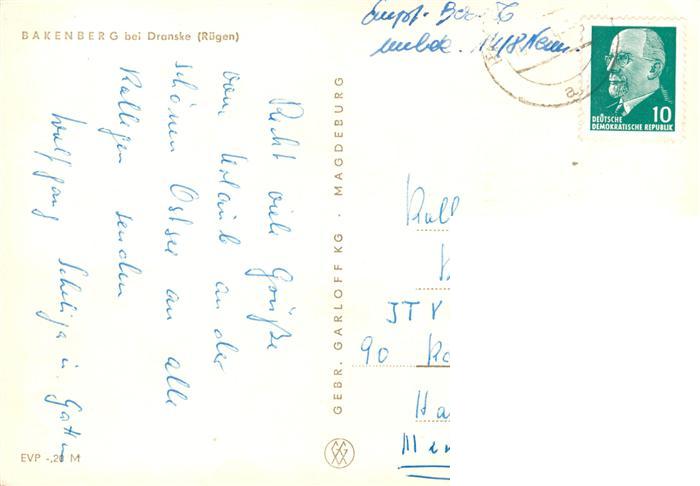 BAKENBERG bei Dranske (Rügen)
Recht viele Grüße
vom Urlaub an der
schönen Ostsee an alle
Kollegen senden
Wolfgang Scheliga u. Gattin
EVP -,20 M
GEBR. GARLOFF KG · MAGDEBURG
Empf. Bez. C
DEUTSCHE
DEMOKRATISCHE REPUBLIK
10
Koll
JTV
90
Ha